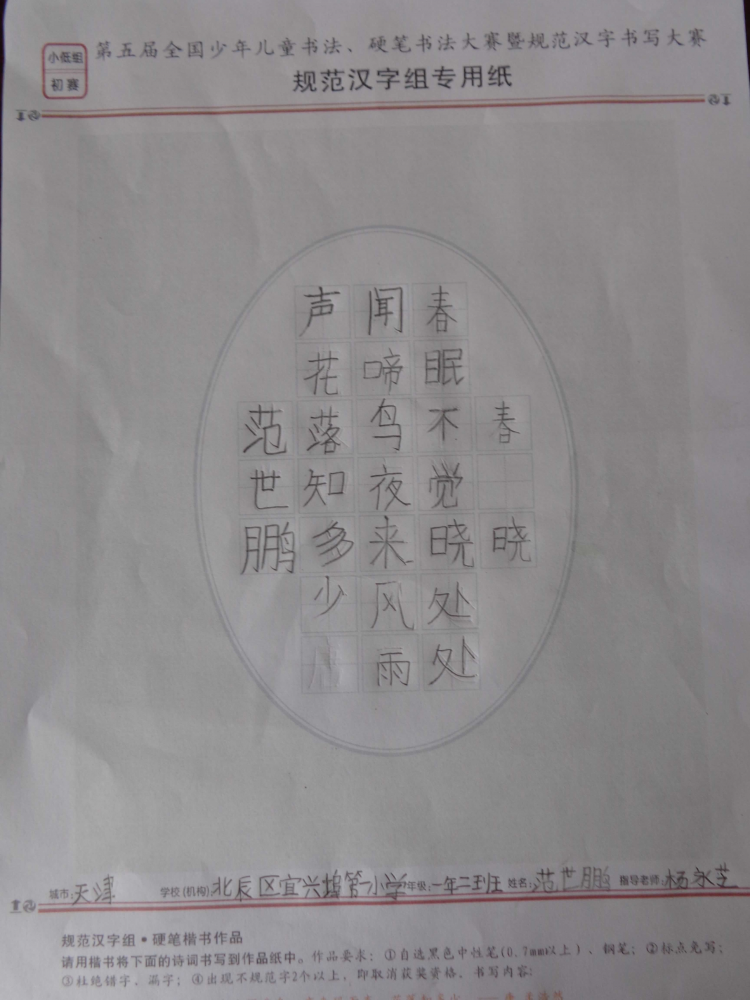 小低组
初赛
第五届全国少年儿童书法、硬笔书法大赛暨规范汉字书写大赛
规范汉字组专用纸
春晓
春眠不觉晓处处
闻啼鸟夜来风雨
声花落知多少
范世鹏
城市:天津 学校(机构)北辰区宜兴埠第一小学 年级:一年二班 姓名:范世鹏 指导老师:杨永芝
规范汉字组·硬笔楷书作品
请用楷书将下面的诗词书写到作品纸中。作品要求:①自选黑色中性笔(0.7mm以上)、钢笔;②标点免写;
③杜绝错字、漏字;④出现不规范字2个以上,即取消获奖资格。书写内容: